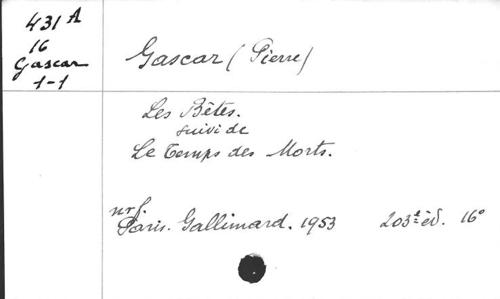 431 A
16
Gascar
1-1
Gascar (Pierre)
Les Bêtes.
suivi de
Le Temps des Morts.
nrf.
Paris. Gallimard. 1953 203e éd. 16°